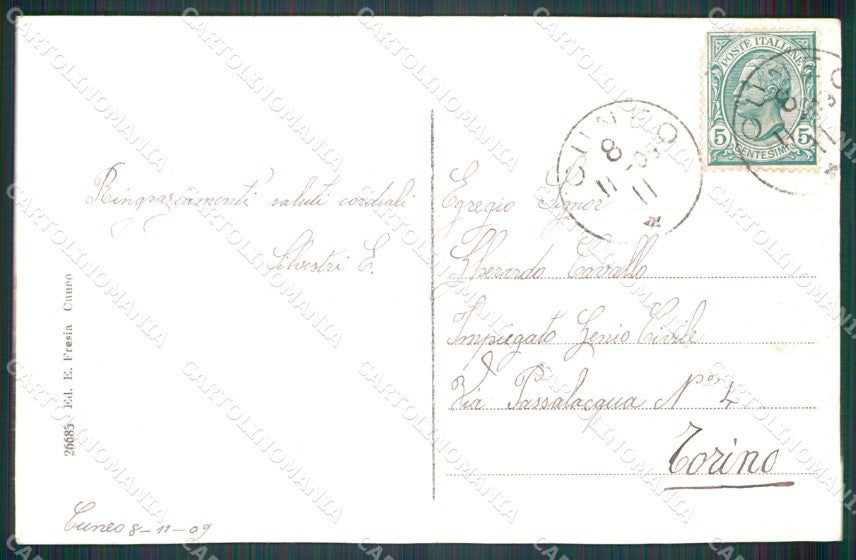 POSTE ITALIANE
5 5
CENTESIMI
CUNEO
8
11-09
11
M
CUNEO
8
Ringraziamenti saluti cordiali
Silvestri E.
Egregio Signor
Gherardo Cavallo
Impiegato Genio Civile
Via Passalacqua No 4
Torino
26685 - Ed. E. Fresia Cuneo
Cuneo 8-11-09
CARTOLINOMANIA